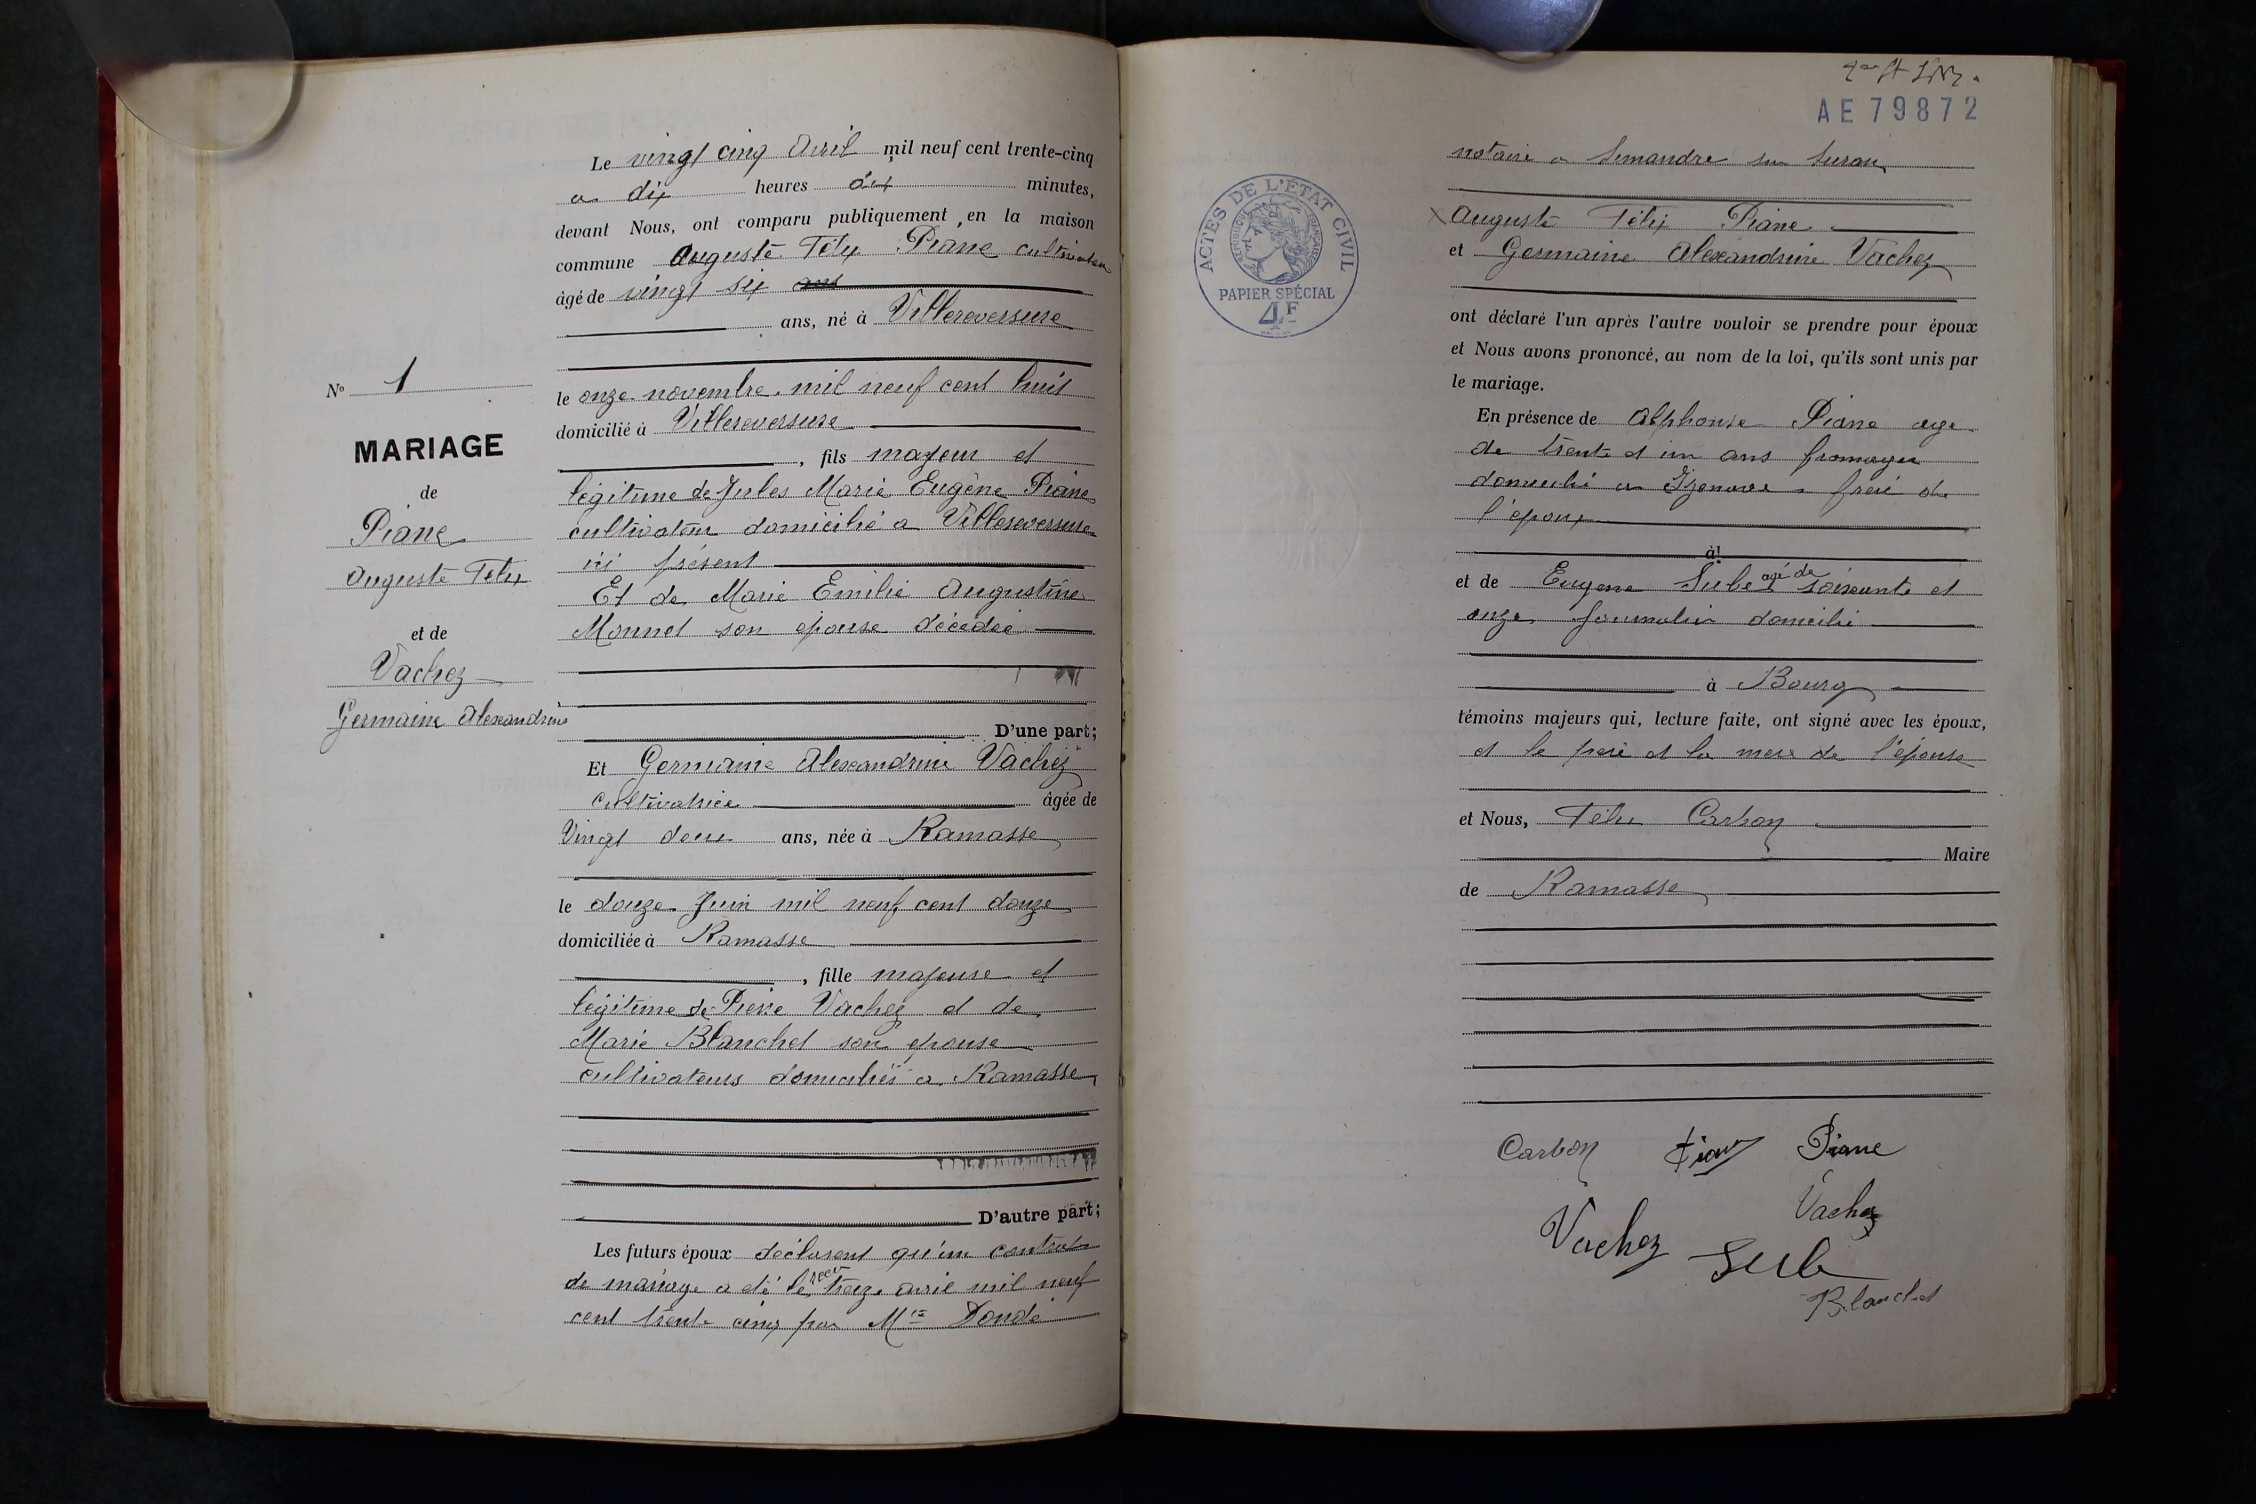 N° 1
MARIAGE
de
Piane
Auguste Felix
et de
Vachez
Germaine Alexandrine
Le vingt cinq Avril mil neuf cent trente-cinq
a dix heures dix minutes,
devant Nous, ont comparu publiquement en la maison
commune Auguste Félix Piane cultivateur
âgé de vingt six ans
ans, né à Villereversure
le onze novembre mil neuf cent huit
domicilié à Villereversure
, fils majeur et
légitime de Jules Marie Eugène Piane
cultivateur domicilié a Villereversure
ici présent
Et de Marie Emilie Augustine
Monnet son épouse décédée
D'une part;
Et Germaine Alexandrine Vachez
cultivatrice âgée de
Vingt deux ans, née à Ramasse
le douze Juin mil neuf cent douze
domiciliée à Ramasse
, fille majeure et
légitime de Pierre Vachez et de
Marie Blanchet son epouse
cultivateurs domiciliés a Ramasse
D'autre part;
Les futurs époux déclarent qu'un contrat
de mariage a été recu le treize avril mil neuf
cent trente cinq par Me Dondé
AE 79872
ACTES DE L'ÉTAT CIVIL
RÉPUBLIQUE FRANÇAISE
PAPIER SPÉCIAL
4F
notaire a Simandre sur Suran
Auguste Félix Piane
et Germaine Alexandrine Vachez
ont déclaré l'un après l'autre vouloir se prendre pour époux
et Nous avons prononcé, au nom de la loi, qu'ils sont unis par
le mariage.
En présence de Alphonse Piane age
de trente et un ans fromager
domicilié a Izernore frère de
l'époux
à
et de Eugene Sube agé de soixante et
onze journalier domicilié
à Bourg
témoins majeurs qui, lecture faite, ont signé avec les époux,
et le père et la mere de l'épouse
et Nous, Félix Carbon
Maire
de Ramasse
Carbon Piane
Vachez
Vachez Sube
Blanchet